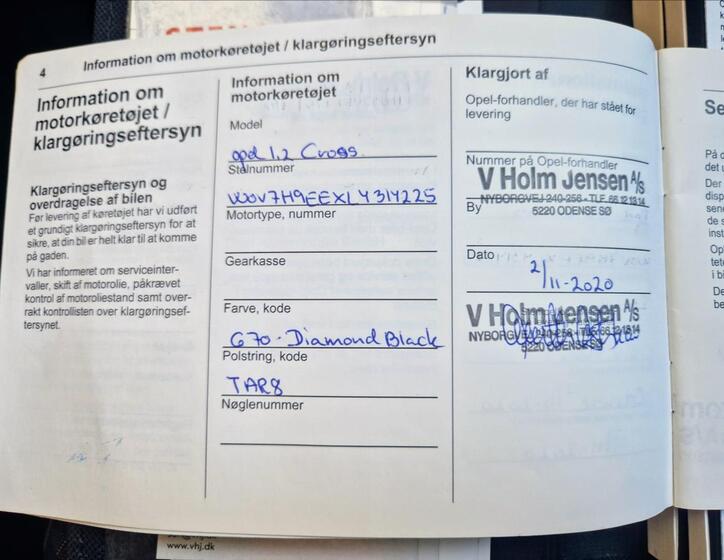 4
Information om motorkøretøjet / klargøringseftersyn
Information om
motorkøretøjet /
klargøringseftersyn
Klargøringseftersyn og
overdragelse af bilen
Før levering af køretøjet har vi udført
et grundigt klargøringseftersyn for at
sikre, at din bil er helt klar til at komme
på gaden.
Vi har informeret om serviceinter-
valler, skift af motorolie, påkrævet
kontrol af motoroliestand samt over-
rakt kontrollisten over klargøringsef-
tersynet.
Information om
motorkøretøjet
Model
opel 1.2 Cross
Stelnummer
W0V7H9EEXL4314225
Motortype, nummer
Gearkasse
Farve, kode
G70 - Diamond Black
Polstring, kode
TAR8
Nøglenummer
Klargjort af
Opel-forhandler, der har stået for
levering
Nummer på Opel-forhandler
V Holm Jensen A/s
NYBORGVEJ 240-256 - TLF. 66 12 13 14
5220 ODENSE SØ
By
Dato
2/11-2020
V Holm Jensen A/s
NYBORGVEJ 240-256 - TLF. 66 12 13 14
5220 ODENSE SØ
www.vhj.dk